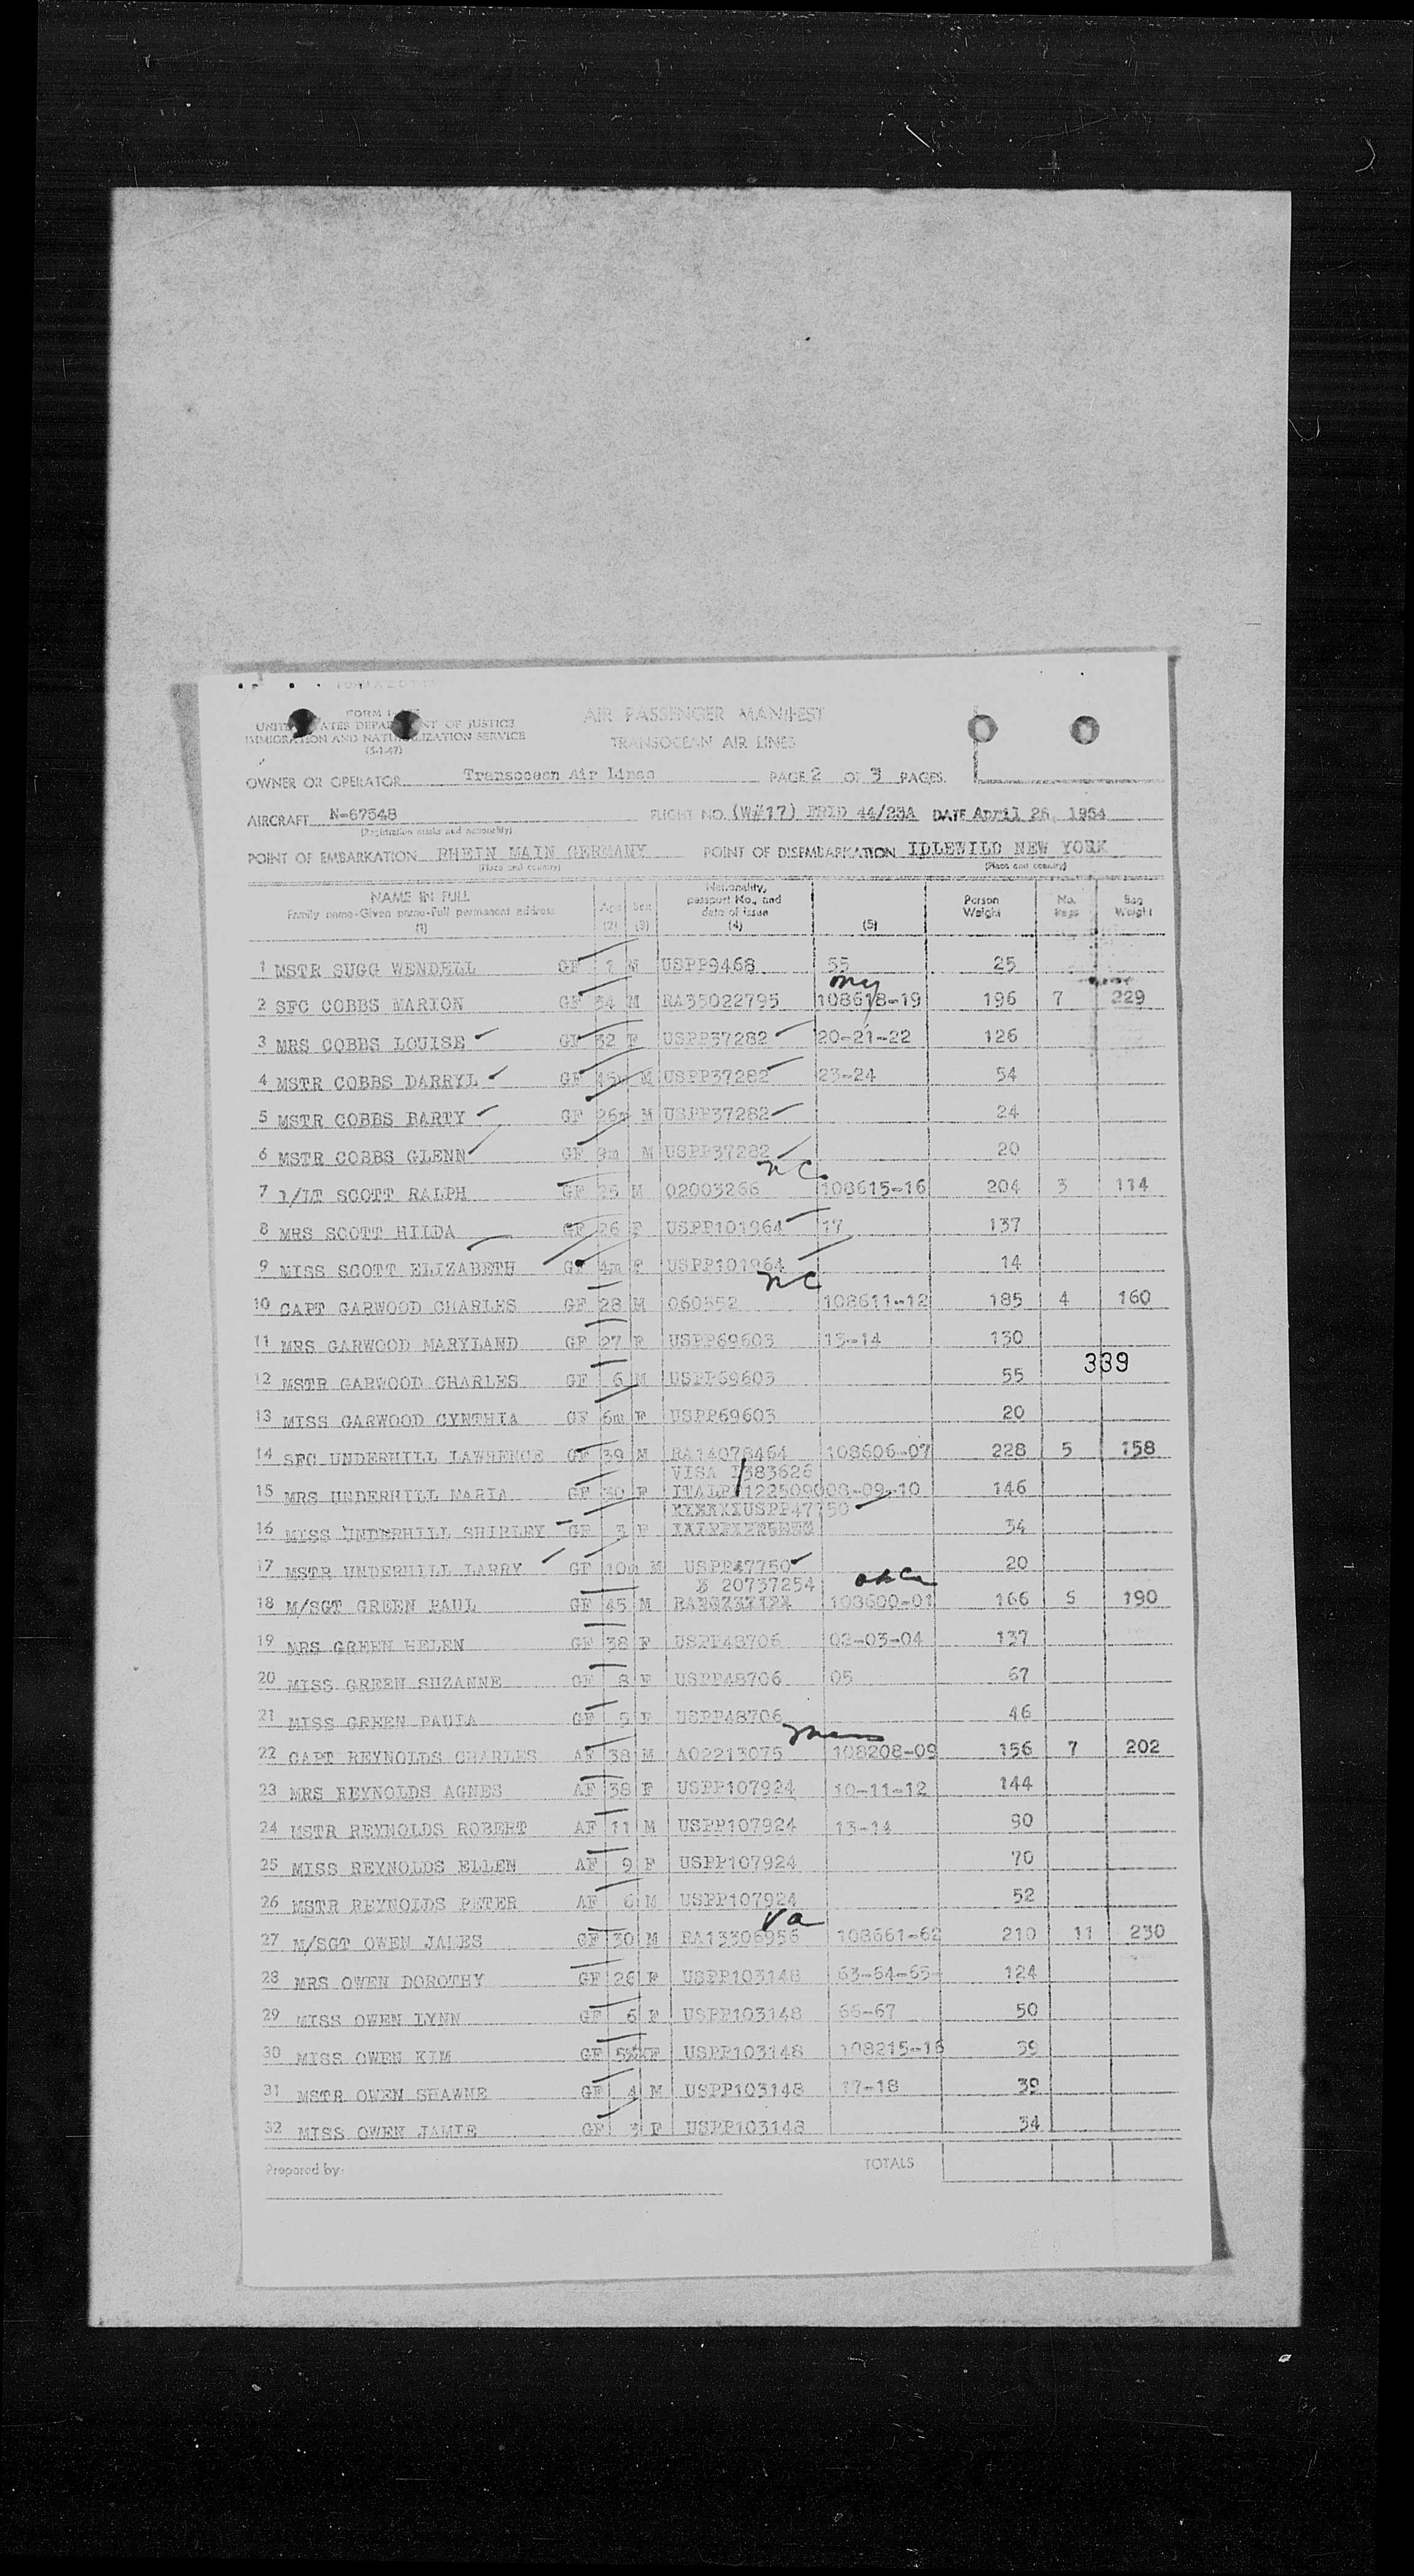 FORM I-
UNITED STATES DEPARTMENT OF JUSTICE
IMMIGRATION AND NATURALIZATION SERVICE
(5-1-47)
AIR PASSENGER MANIFEST
TRANSOCEAN AIR LINES
OWNER OR OPERATOR Transocean Air Lines PAGE 2 OF 3 PAGES.
AIRCRAFT N-67548 FLIGHT NO. (W#17) FRID 44/23A DATE April 26, 1954
(Registration marks and nationality)
POINT OF EMBARKATION RHEIN MAIN GERMANY POINT OF DISEMBARKATION IDLEWILD NEW YORK
(Place and country) (Place and country)
NAME IN FULL Family name-Given name-Full permanent address (1) Age (2) Sex (3) Nationality, passport No., and date of issue (4) (5) Person Weight No. Bags Bag Weight
1 MSTR SUGG WENDELL GF M USPP9468 55 25
2 SFC COBBS MARION GF 34 M RA35022795 108618-19 196 7 229
3 MRS COBBS LOUISE GF 32 F USPP37282 20-21-22 126
4 MSTR COBBS DARRYL GF M USPP37282 23-24 54
5 MSTR COBBS BARTY GF 26m M USPP37282 24
6 MSTR COBBS GLENN GF 9m M USPP37282 20
nc
7 1/LT SCOTT RALPH GF 25 M 02003266 108615-16 204 3 114
8 MRS SCOTT HILDA GF 26 F USPP101964 17 137
9 MISS SCOTT ELIZABETH GF 4m F USPP101964 14
nc
10 CAPT GARWOOD CHARLES GF 28 M 060552 108611-12 185 4 160
11 MRS GARWOOD MARYLAND GF 27 F USPP69603 13-14 130
339
12 MSTR GARWOOD CHARLES GF 6 M USPP69603 55
13 MISS GARWOOD CYNTHIA GF 6m F USPP69603 20
14 SFC UNDERHILL LAWRENCE GF 39 M RA14078464 108606-07 228 5 158
VISA I383626
15 MRS UNDERHILL MARIA GF 30 F ITALPP1225090 08-09-10 146
USPP47750
16 MISS UNDERHILL SHIRLEY GF 3 F 34
17 MSTR UNDERHILL LARRY GF 10m M USPP47750 20
20737254
18 M/SGT GREEN PAUL GF 45 M 108600-01 166 5 190
19 MRS GREEN HELEN GF 38 F USPP48706 02-03-04 137
20 MISS GREEN SUZANNE GF 8 F USPP48706 05 67
21 MISS GREEN PAULA GF 5 F USPP48706 46
22 CAPT REYNOLDS CHARLES AF 38 M AO2213075 108208-09 156 7 202
23 MRS REYNOLDS AGNES AF 38 F USPP107924 10-11-12 144
24 MSTR REYNOLDS ROBERT AF 11 M USPP107924 13-14 90
25 MISS REYNOLDS ELLEN AF 9 F USPP107924 70
26 MSTR REYNOLDS PETER AF 6 M USPP107924 52
Va
27 M/SGT OWEN JAMES GF 30 M RA13306956 108661-62 210 11 230
28 MRS OWEN DOROTHY GF 26 F USPP103148 63-64-65- 124
29 MISS OWEN LYNN GF 6 F USPP103148 66-67 50
30 MISS OWEN KIM GF F USPP103148 108215-16 39
31 MSTR OWEN SHAWNE GF 4 M USPP103148 17-18 39
32 MISS OWEN JAMIE GF 3 F USPP103148 34
Prepared by: TOTALS